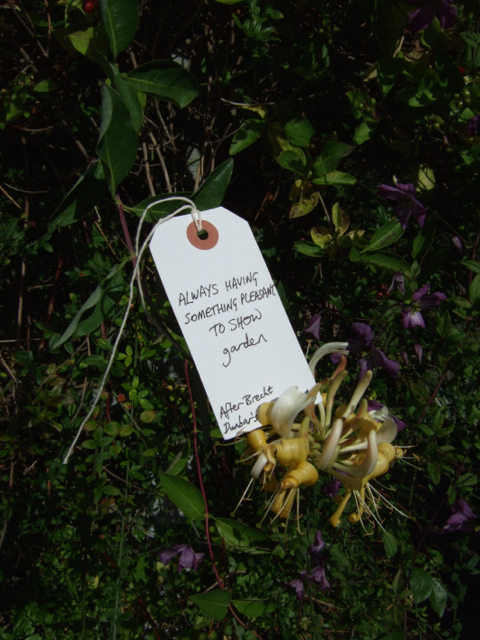 ALWAYS HAVING
SOMETHING PLEASANT
TO SHOW
garden
After Brecht